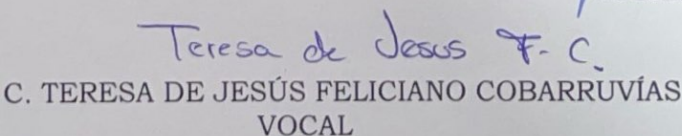 Teresa de Jesus F. C.
C. TERESA DE JESÚS FELICIANO COBARRUVÍAS
VOCAL